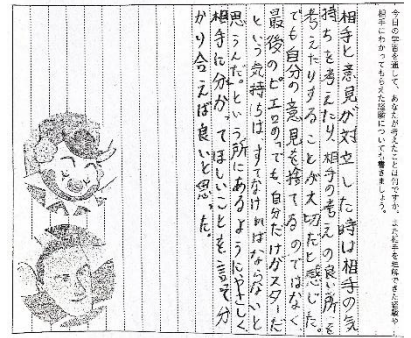 今日の学習を通して、あなたが考えたことは何ですか。また相手を理解できた経験や、
相手にわかってもらえた経験についても書きましょう。
相手と意見が対立した時は相手の気
持ちを考えたり、相手の考えの良い所を
考えたりすることが大切だと感じた。
でも自分の意見を捨てるのではなく
最後のピエロの「でも、自分だけがスターだ
という気持ちは、すてなければならないと
思うんだ。」という所にあるようにやさしく
相手に分かってほしいことを言って分
かり合えば良いと思った。